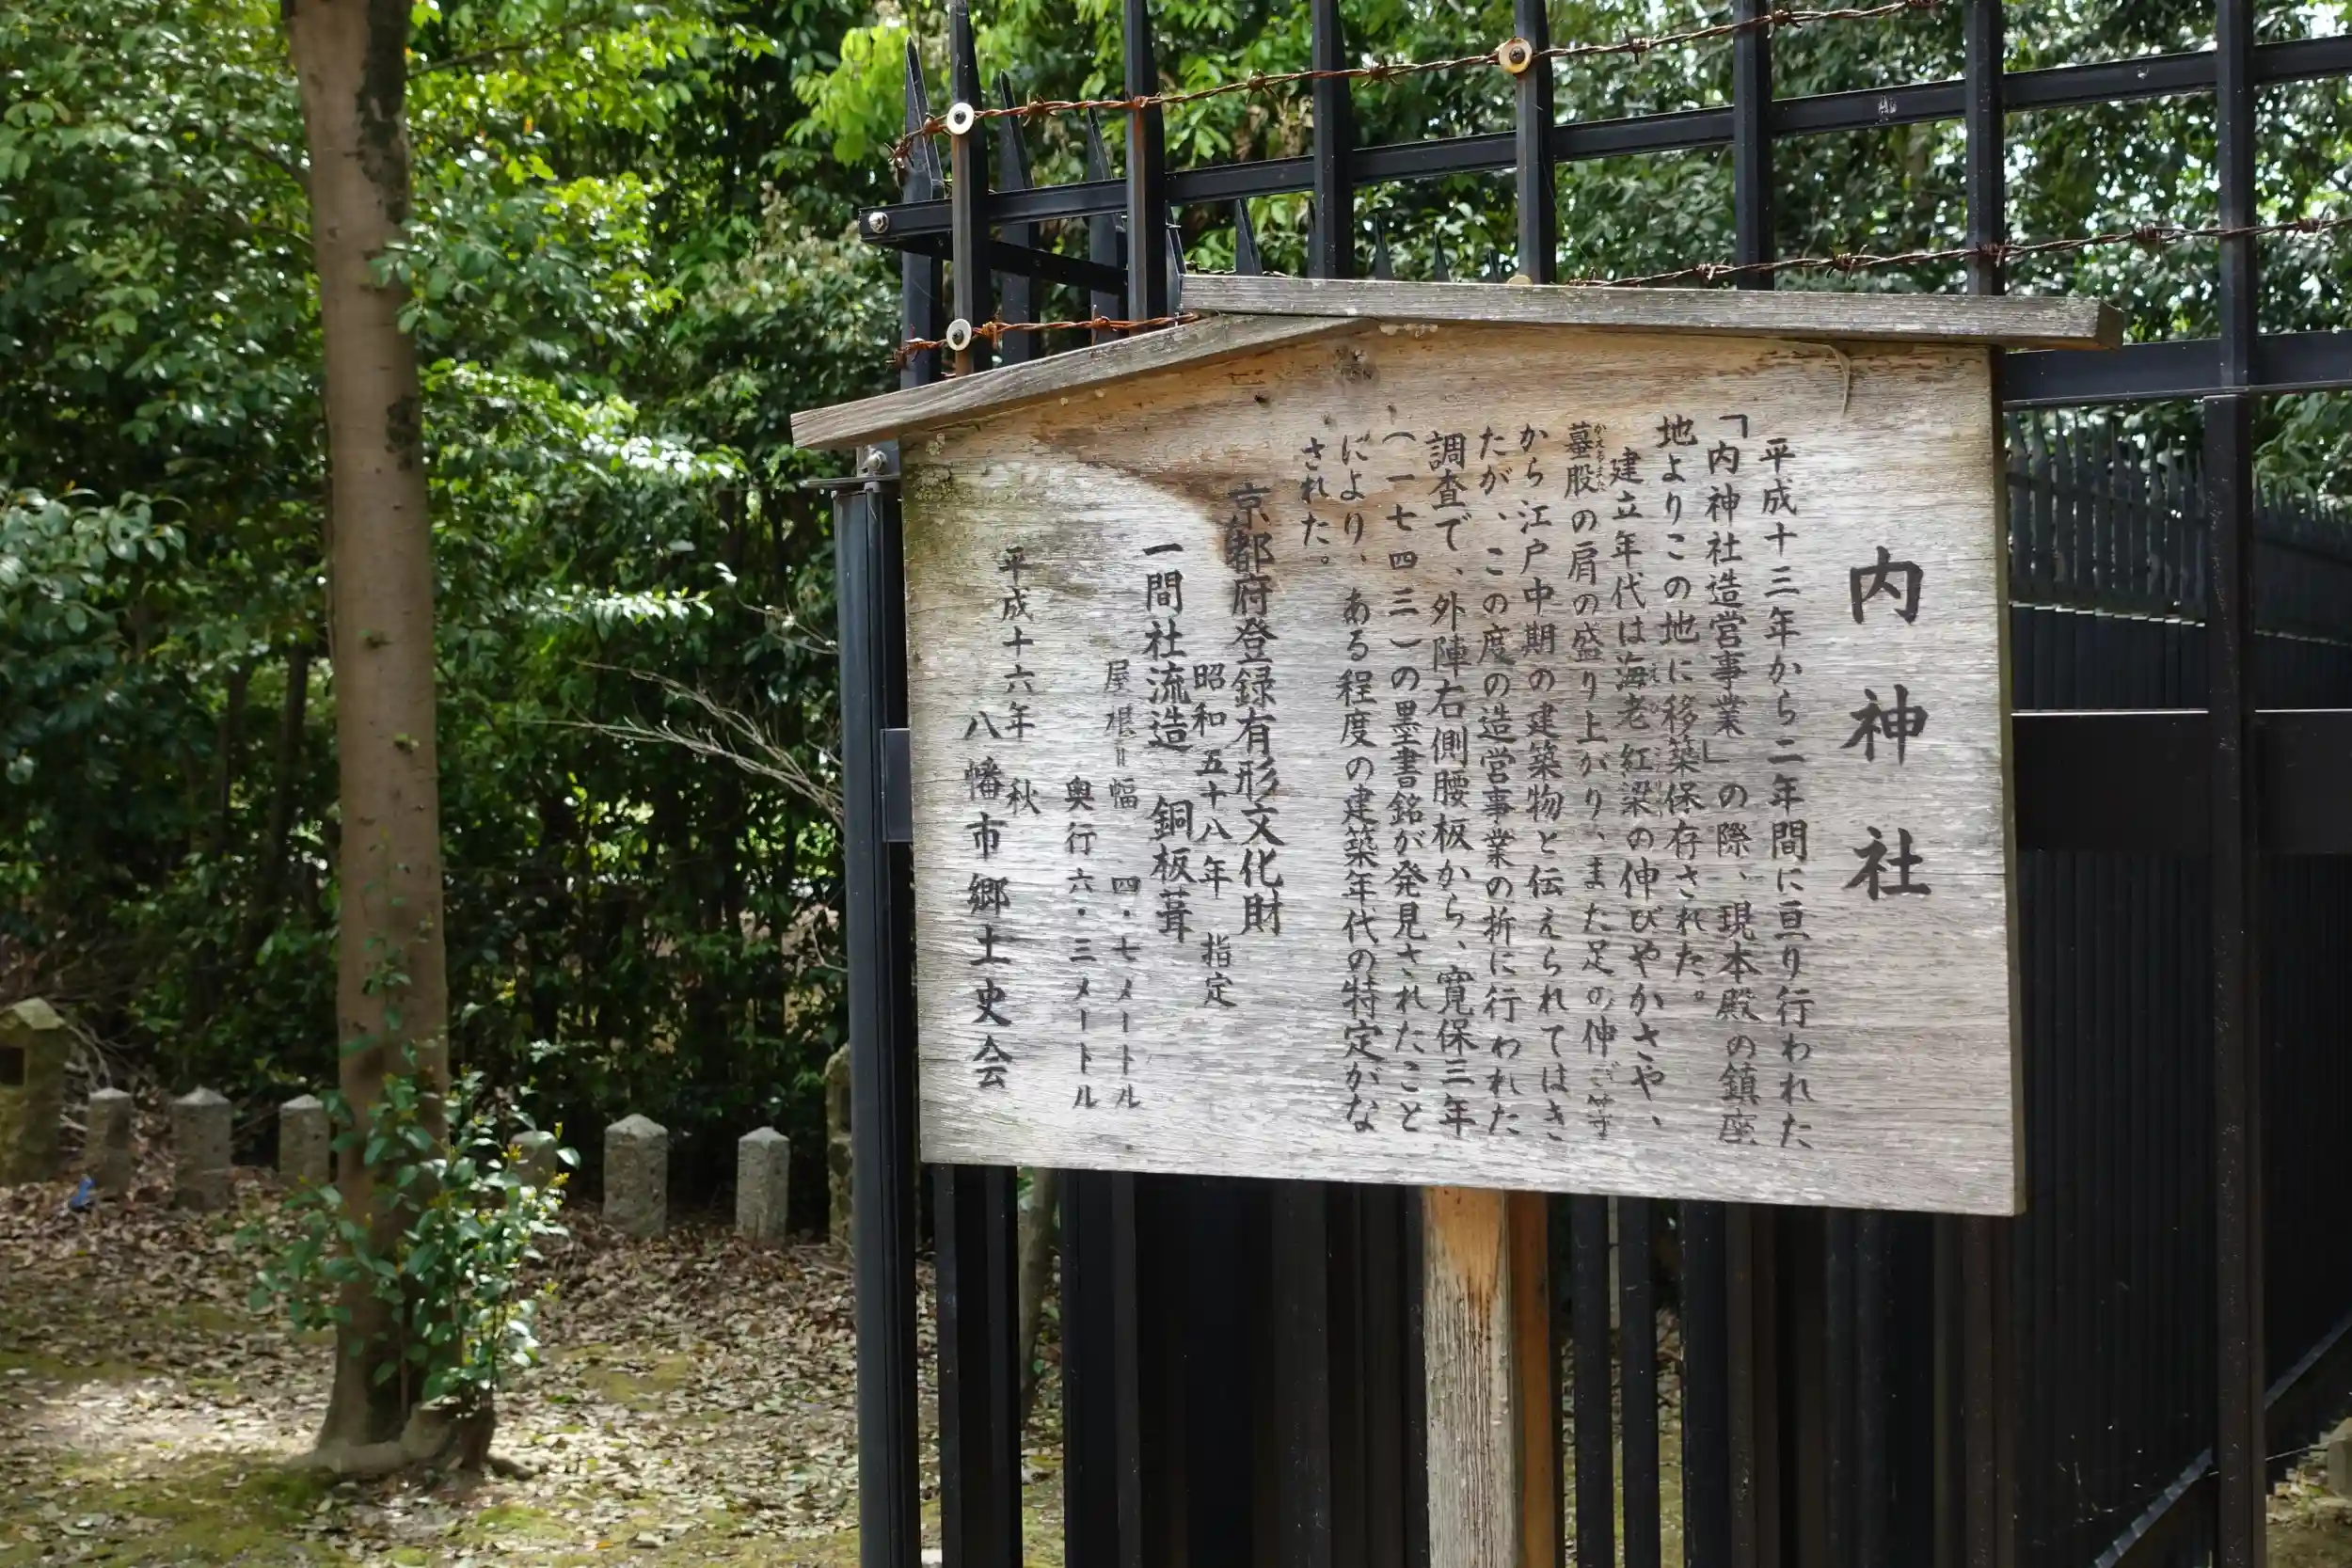 内神社
平成十三年から二年間に亘り行われた
「内神社造営事業」の際、現本殿の鎮座
地よりこの地に移築保存された。
建立年代は海老紅梁の伸びやかさや、
蟇股の肩の盛り上がり、また足の伸び等
から江戸中期の建築物と伝えられてはき
たが、この度の造営事業の折に行われた
調査で、外陣右側腰板から、寛保三年
(一七四三)の墨書銘が発見されたこと
により、ある程度の建築年代の特定がな
された。
京都府登録有形文化財
昭和五十八年 指定
一間社流造 銅板葺
屋根=幅 四・七メートル
奥行六・三メートル
平成十六年 秋
八幡市郷土史会